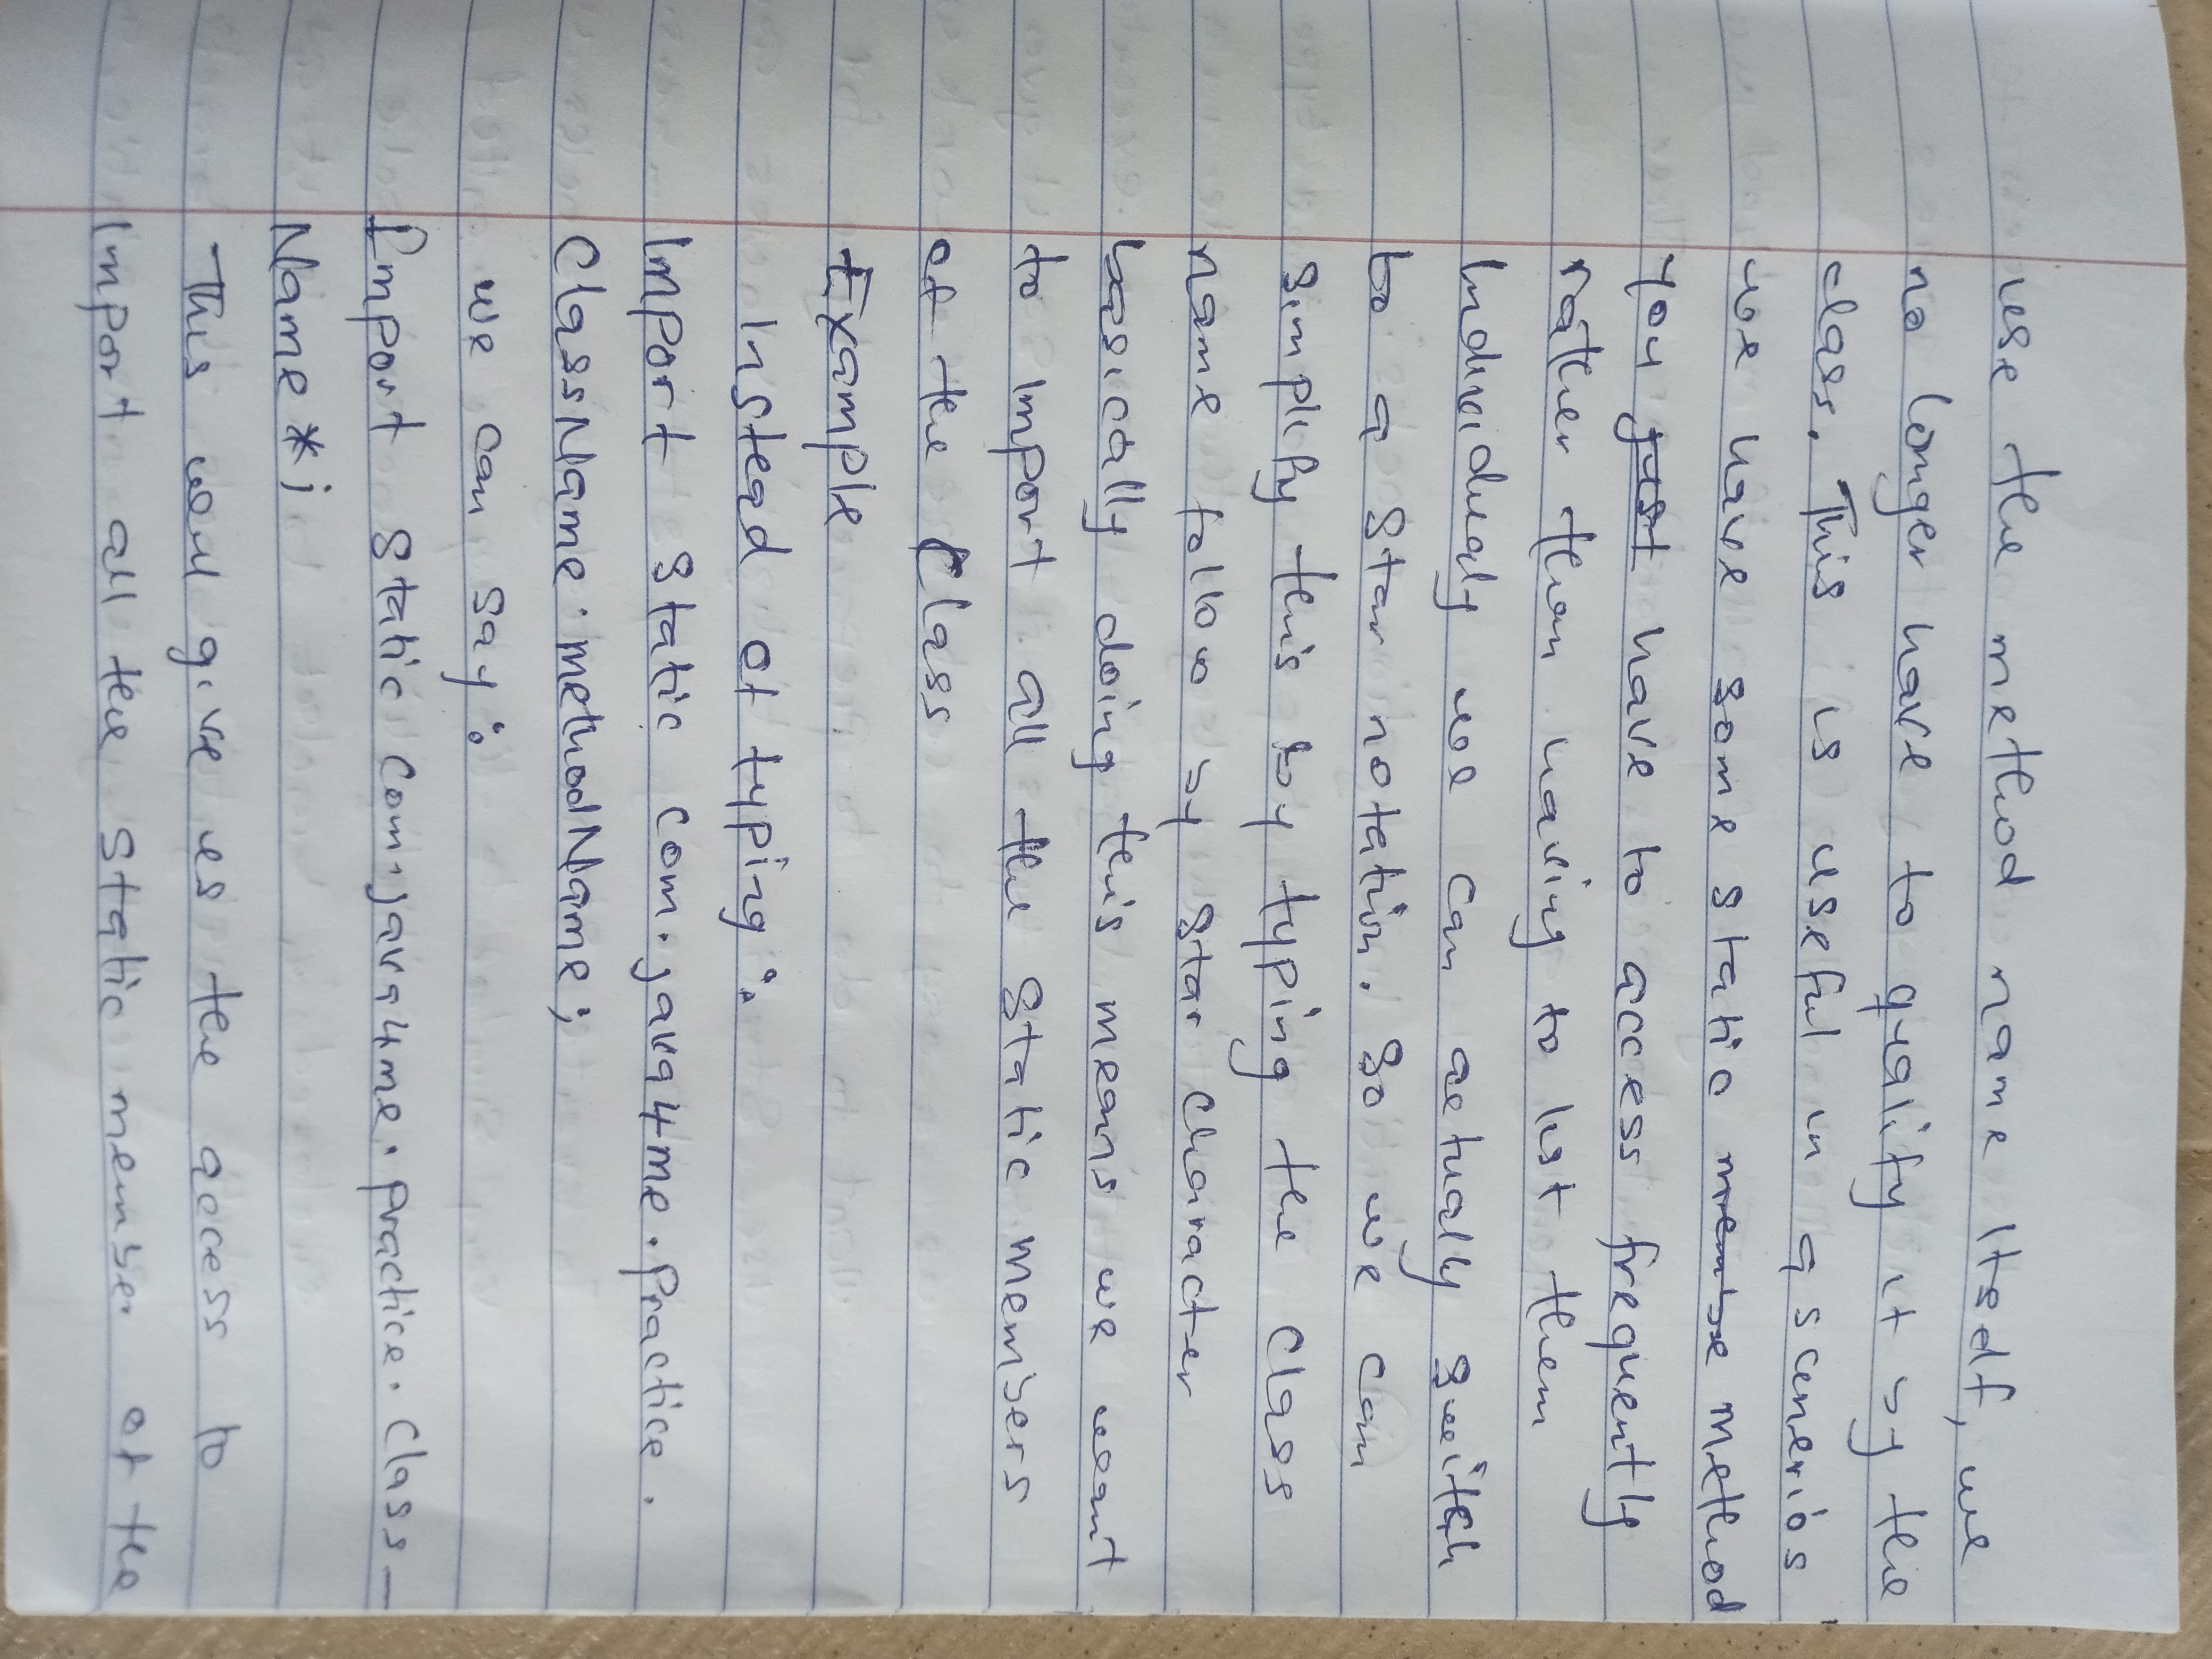 use the method name itself, we
no longer have to qualify it by the
class. This is useful in a scenerios
we have some static membe method
you just have to access frequently
rather than having to list them
Individually we can actually switch
to a star notation. So we can
simplify this by typing the class
name follow by star character
basically doing this means we want
to import all the static members
of the class
Example
Instead of typing:
Import static com.java4me.practice.
ClassName.methodName;
we can say:
Import static com.java4me.practice.class-
Name*;
This will give us the access to
Import all the static member of the